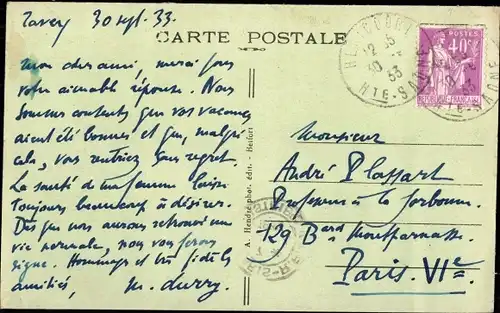 Tavey 30 sept. 33
CARTE POSTALE
Mon cher ami, merci pour
votre aimable réponse. Nous
sommes contents que vos vacances
aient été bonnes et que, malgré
cela, vous rentriez sans regret.
La santé de ma femme laisse
toujours beaucoup à désirer.
Dès que nous aurons retrouvé un
vie normale, nous vous ferons
signe. Hommages et très fidèles
amitiés,
A. Hendré phot. édit. - Héricourt
HÉRICOURT
12 15
30
33
HTE-SAONE
POSTES
40c
REPUBLIQUE FRANÇAISE
Monsieur
André Plassart
Professeur à la Sorbonne
129 Bard Montparnasse
Paris. VIe.